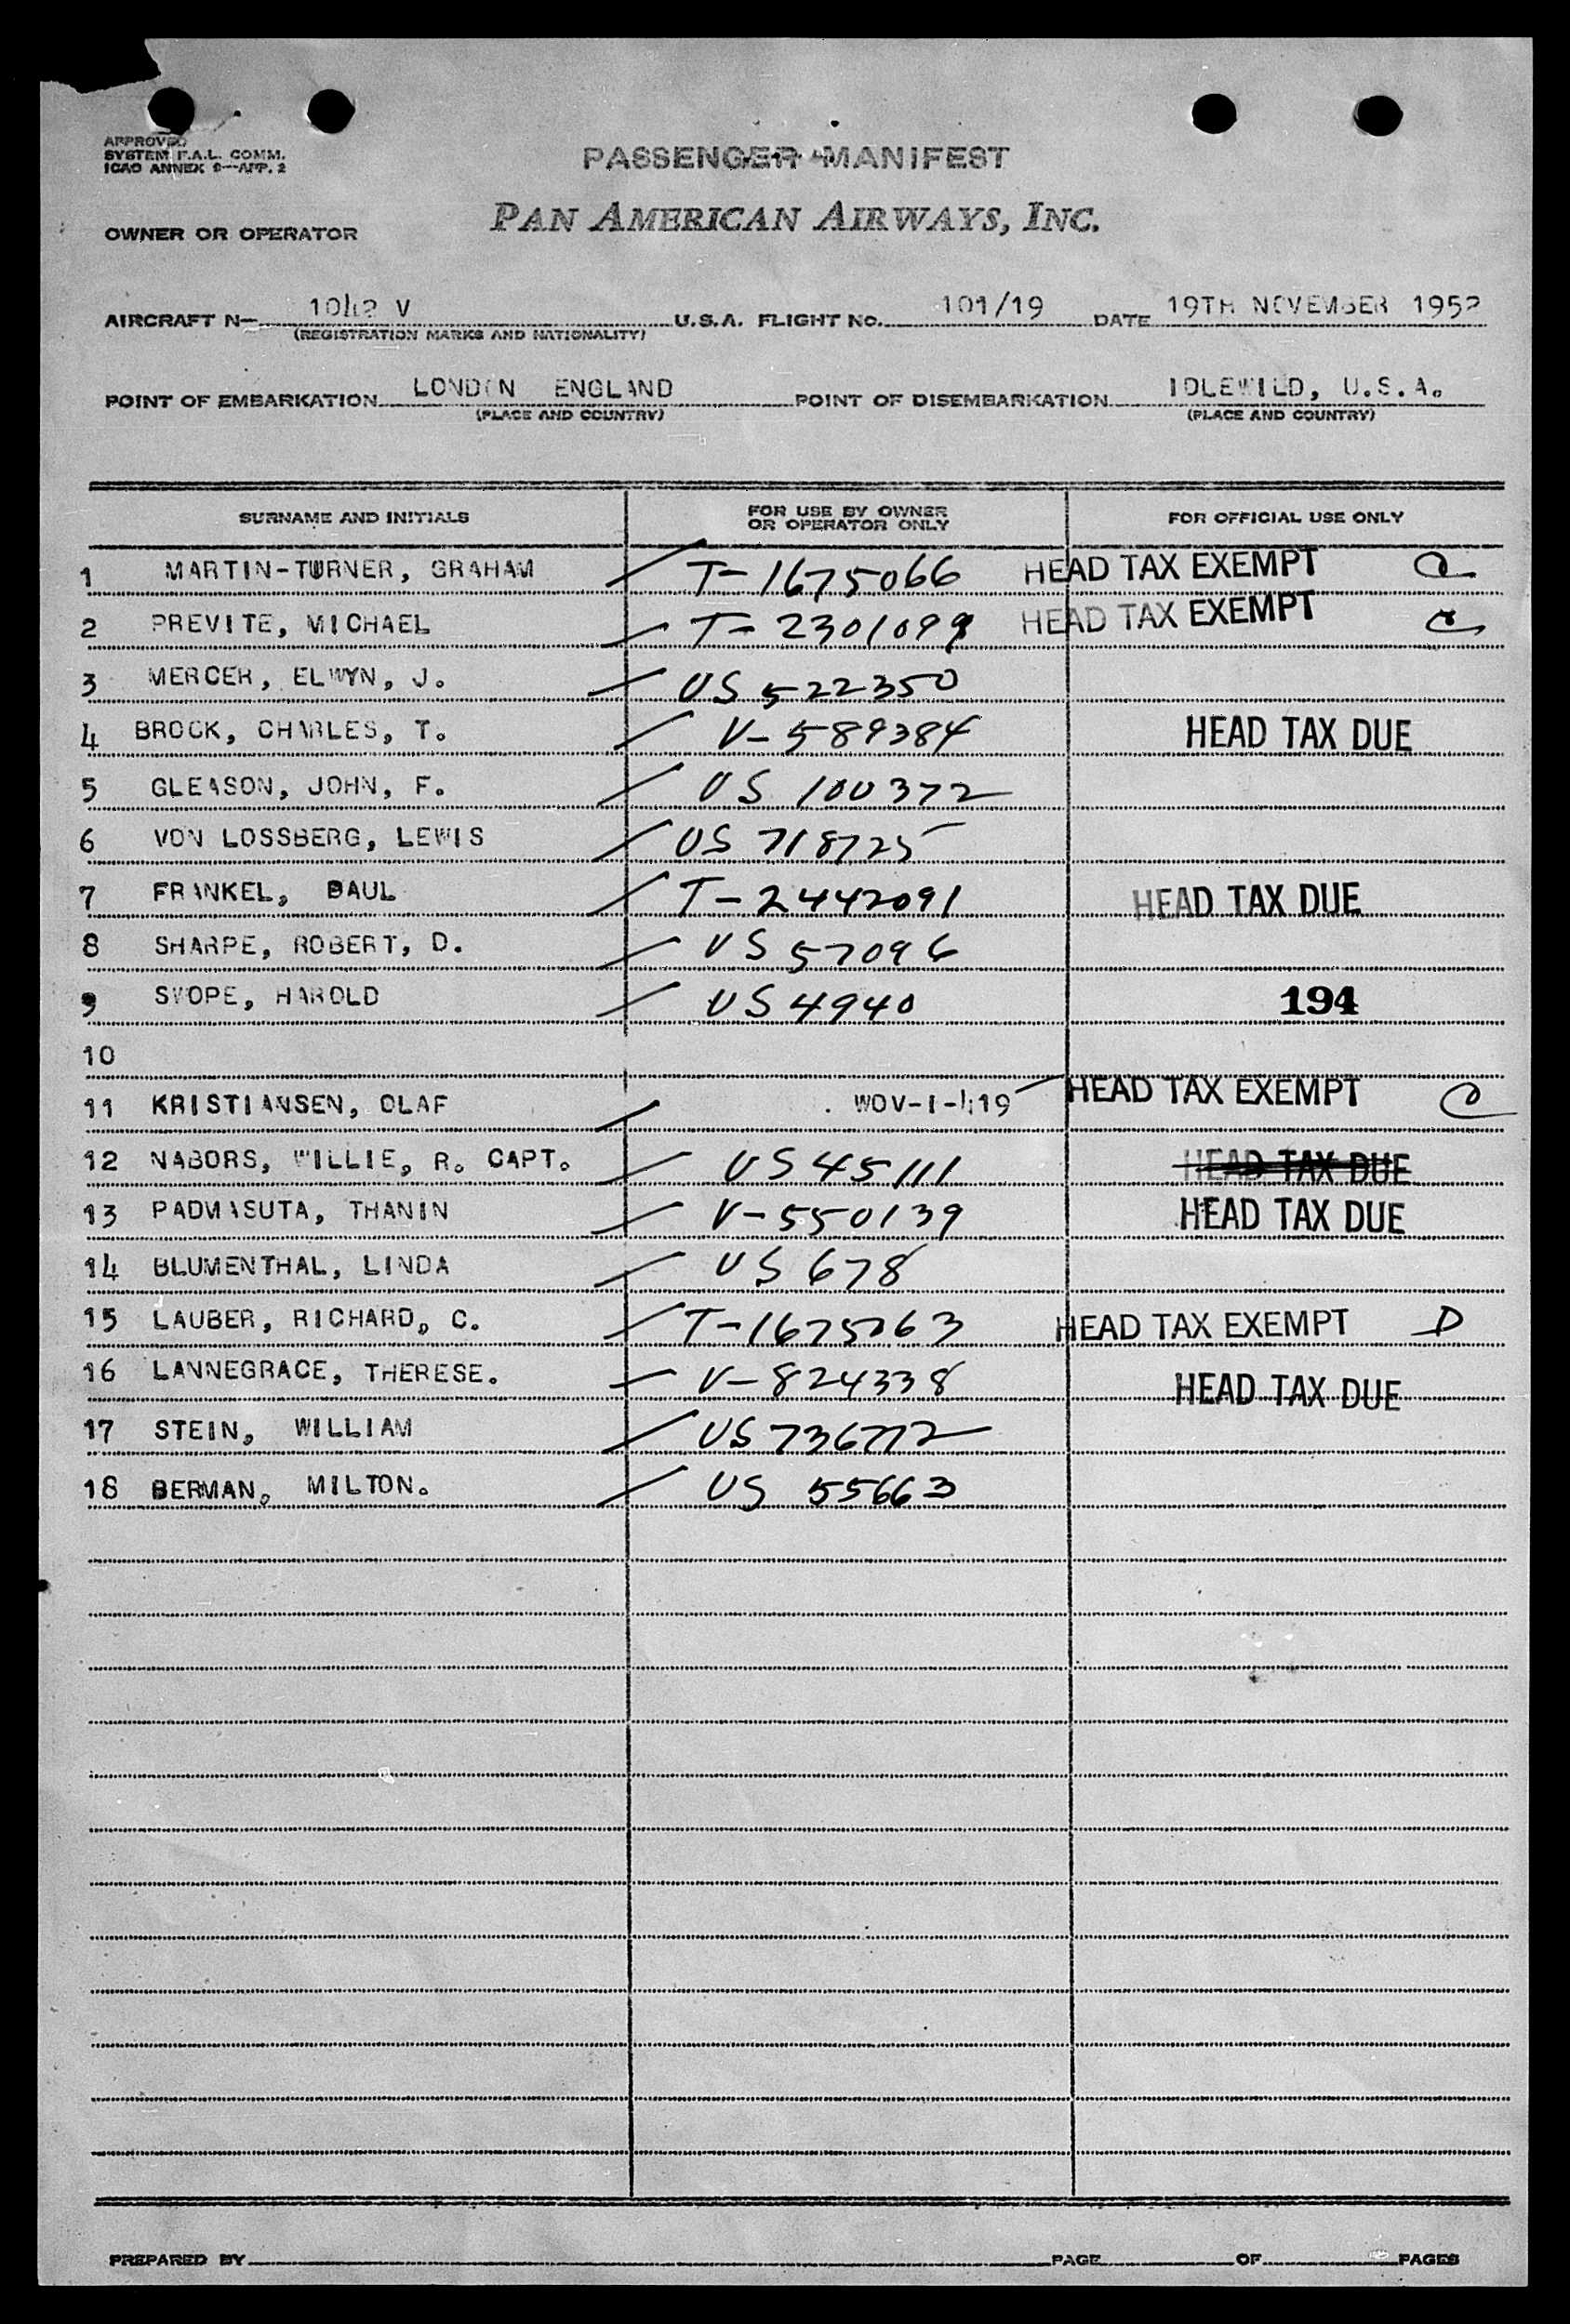 APPROVED
SYSTEM F.A.L. COMM.
ICAO ANNEX 9—APP. 2
PASSENGER MANIFEST
OWNER OR OPERATOR PAN AMERICAN AIRWAYS, INC.
AIRCRAFT N— 1042 V U.S.A. FLIGHT No. 101/19 DATE 19TH NOVEMBER 1952
(REGISTRATION MARKS AND NATIONALITY)
POINT OF EMBARKATION LONDON ENGLAND POINT OF DISEMBARKATION IDLEWILD, U.S.A.
(PLACE AND COUNTRY) (PLACE AND COUNTRY)
SURNAME AND INITIALS FOR USE BY OWNER OR OPERATOR ONLY FOR OFFICIAL USE ONLY
1 MARTIN-TURNER, GRAHAM T-1675066 HEAD TAX EXEMPT C
2 PREVITE, MICHAEL T-2301099 HEAD TAX EXEMPT C
3 MERCER, ELWYN, J. US 522350
4 BROCK, CHARLES, T. V-589384 HEAD TAX DUE
5 GLEASON, JOHN, F. US 100372
6 VON LOSSBERG, LEWIS US 718725
7 FRANKEL, BAUL T-2442091 HEAD TAX DUE
8 SHARPE, ROBERT, D. US 57096
9 SWOPE, HAROLD US 4940 194
10
11 KRISTIANSEN, OLAF WOV-I-419 HEAD TAX EXEMPT C
12 NABORS, WILLIE, R. CAPT. US 45111 HEAD TAX DUE
13 PADMASUTA, THANIN V-550139 HEAD TAX DUE
14 BLUMENTHAL, LINDA US 678
15 LAUBER, RICHARD, C. T-1675063 HEAD TAX EXEMPT D
16 LANNEGRACE, THERESE. V-824338 HEAD TAX DUE
17 STEIN, WILLIAM US 736772
18 BERMAN, MILTON. US 55663
PREPARED BY PAGE OF PAGES